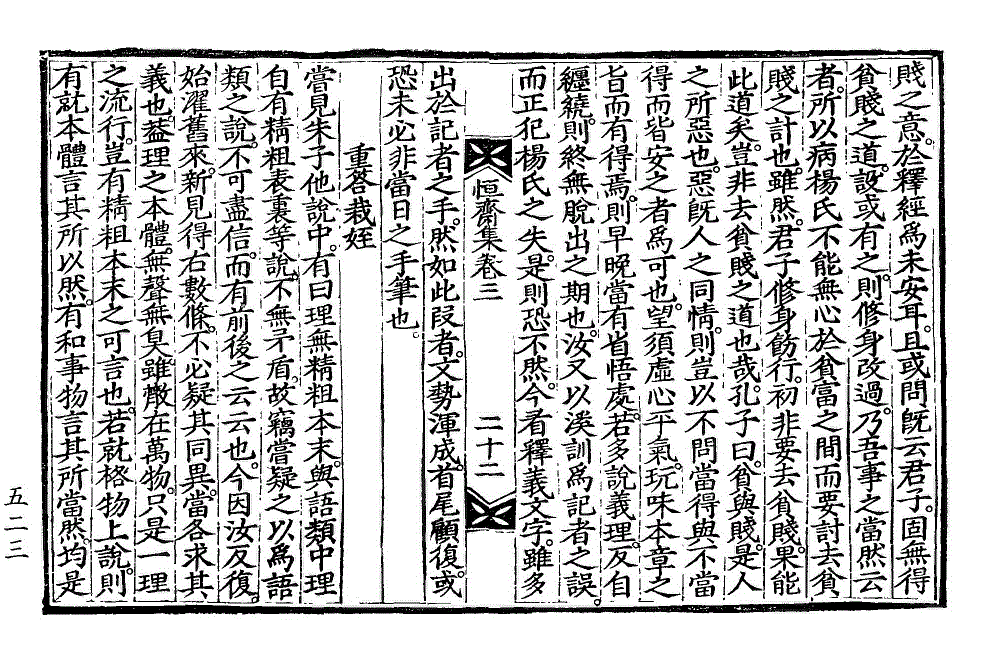 賤之意。於釋經爲未安耳。且或問旣云君子。固無得
貧賤之道。設或有之。則修身改過。乃吾事之當然云
者。所以病楊氏不能無心於貧富之間而要討去貧
賤之計也。雖然。君子修身飭行。初非要去貧賤。果能
此道矣。豈非去貧賤之道也哉。孔子曰。貧與賤。是人
之所惡也。惡旣人之同情。則豈以不問當得與不當
得而皆安之者爲可也。望須虛心平氣。玩味本章之
旨而有得焉。則早晩當有省悟處。若多說義理。反自
纏繞。則終無脫出之期也。汝又以溪訓爲記者之誤
而正犯楊氏之失。是則恐不然。今看釋義文字。雖多
恒齋集卷三
二十二
出於記者之手。然如此段者。文勢渾成。首尾顧復。或
恐未必非當日之手筆也。
重答栽姪
嘗見朱子他說中。有曰理無精粗本末。與語類中理
自有精粗表裏等說。不無矛盾。故竊嘗疑之以爲語
類之說。不可盡信。而有前後之云云也。今因汝反復。
始濯舊來。新見得右數條。不必疑其同異。當各求其
義也。葢理之本體。無聲無臭。雖散在萬物。只是一理
之流行。豈有精粗本末之可言也。若就格物上說。則
有就本體言其所以然。有和事物言其所當然。均是
五二三